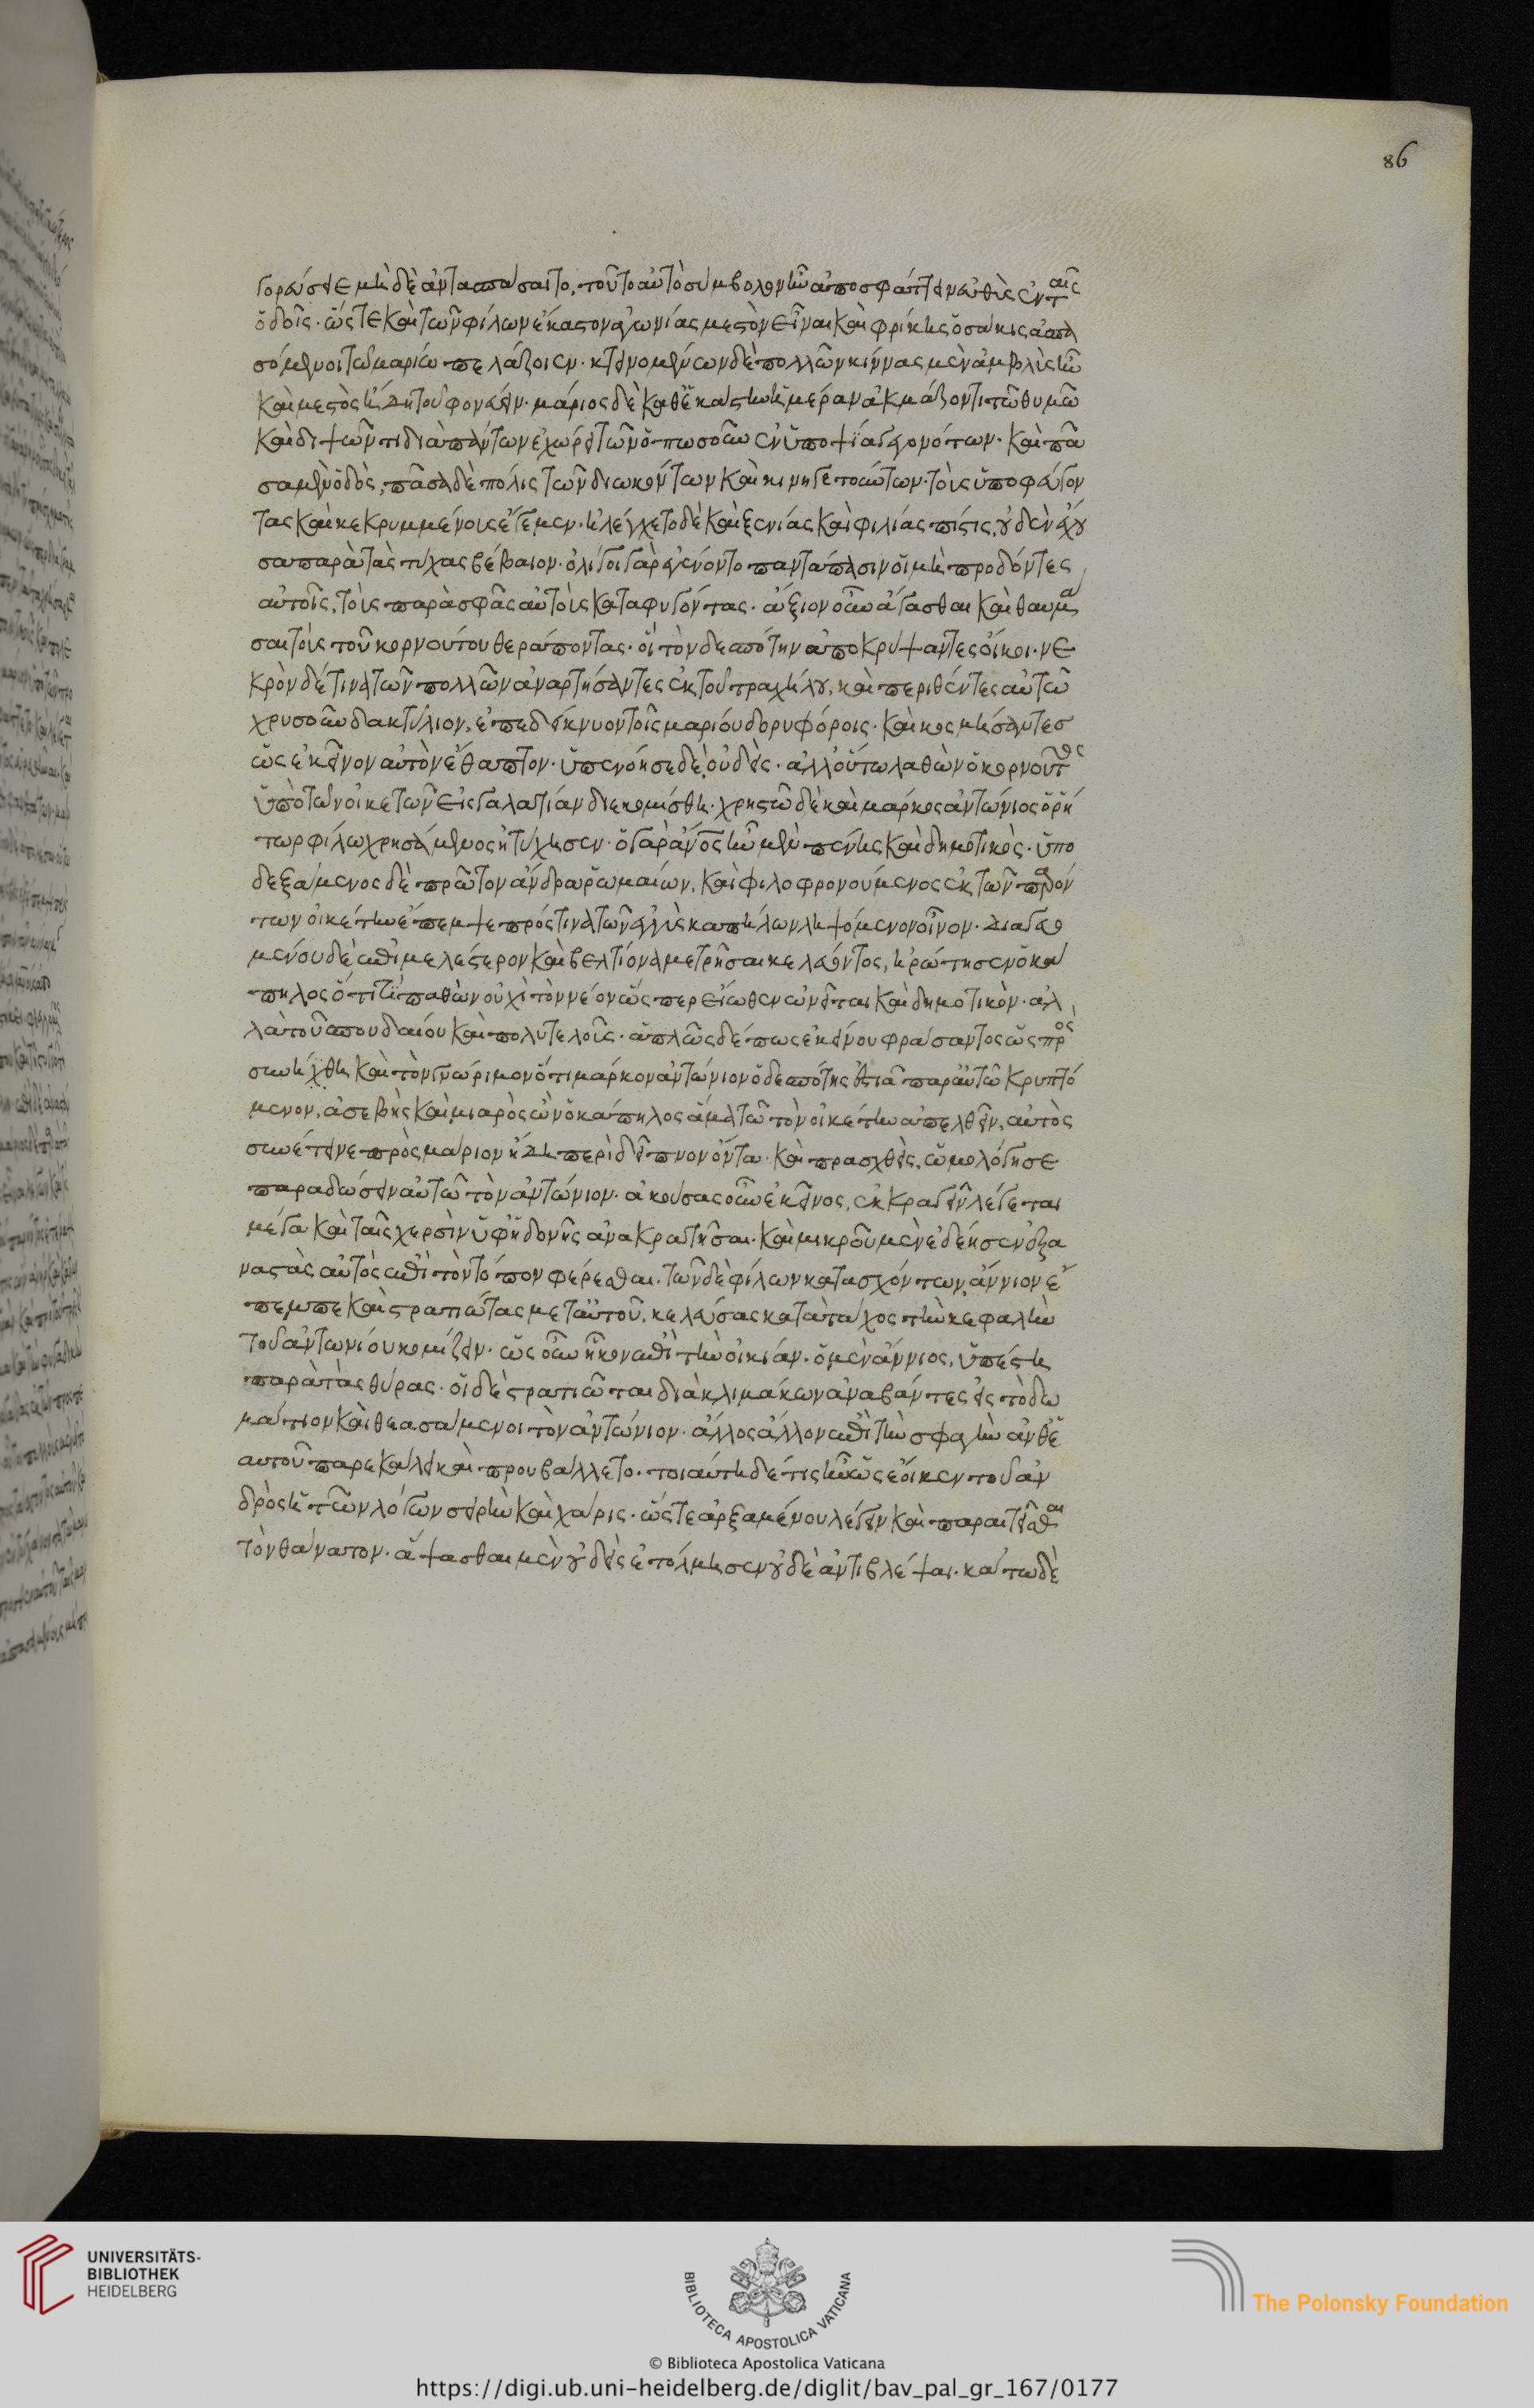 86
γορεύσειε μηδὲ ἀντασπάσαιτο, τοῦτο αὐτὸ σύμβολον ἦν ἀποσφάττειν εὐθὺς ἐν ταῖς
ὁδοῖς. ὥστε καὶ τῶν φίλων ἕκαστον ἀγωνίας μεστὸν εἶναι καὶ φρίκης ὁσάκις ἀσπα
σόμενοι τῶ μαρίω πελάζοιεν. κτεινομένων δὲ πολλῶν κίννας μὲν ἀμβλὺς ἦν
καὶ μεστὸς ἤδη τοῦ φονεύειν. μάριος δὲ καθ ἑκάστην ἡμέραν ἀκμάζοντι τῶ θυμῶ
καὶ διψῶντι διὰ πάντων ἐχώρει τῶν ὁπωσοῦν ἐν ὑποψία γεγονότων. καὶ πᾶ
σα μὲν ὁδὸς, πᾶσα δὲ πόλις τῶν διωκόντων καὶ κυνηγετούντων. τοὺς ὑποφεύγον
τας καὶ κεκρυμμένους ἔγεμεν. ἠλέγχετο δὲ καὶ ξενίας καὶ φιλίας πίστις, οὐδὲν ἔχου
σα παρὰ τὰς τύχας βέβαιον. ὀλίγοι γὰρ ἐγένοντο παντάπασιν οἱ μὴ προδόντες
αὐτοῖς, τοὺς παρὰ σφᾶς αὐτοὺς καταφυγόντας. ἄξιον οὖν ἄγασθαι καὶ θαυμά
σαι τοὺς τοῦ κορνούτου θεράποντας. οἳ τὸν δεσπότην ἀποκρύψαντες οἴκοι. νε
κρὸν δέ τινα τῶν πολλῶν ἀναρτήσαντες ἐκ τοῦ τραχήλου, καὶ περιθέντες αὐτῶ
χρυσοῦν δακτύλιον, ἐπεδείκνυον τοῖς μαρίου δορυφόροις. καὶ κοσμήσαντεσ
ὡς ἐκεῖνον αὐτὸν ἔθαπτον. ὑπενόησε δὲ, οὐδείς. ἀλλ οὕτω λαθὼν ὁ κορνοῦτος
ὑπὸ τῶν οἰκετῶν εἰς γαλατίαν διεκομίσθη. χρηστῶ δὲ καὶ μάρκος ἀντώνιος ὁ ῥή
τωρ φίλω χρησάμενος ἠτύχησεν. ὁ γὰρ ἄνος ἦν μὲν πένης καὶ δημοτικὸς. ὑπο
δεξάμενος δὲ πρῶτον ἄνδρα ῥωμαίων, καὶ φιλοφρονούμενος ἐκ τῶν παρόν
των οἰκέτην ἔπεμψε πρός τινα τῶν ἐγγὺς καπήλων ληψόμενον οἶνον. διαγευο
μένου δὲ ἐπιμελέστερον καὶ βελτίονα μετρῆσαι κελεύοντος, ἠρώτησεν ὁ κά
πηλος ὅτι τί παθὼν οὐχὶ τὸν νέον ὥσπερ εἴωθεν ὠνεῖται καὶ δημοτικὸν. ἀλ
λὰ τοῦ σπουδαίου καὶ πολυτελοῦς. ἁπλῶς δέ πως ἐκείνου φράσαντος ὡς πρὸς
συνήχθη καὶ τὸν γνώριμον ὅτι μάρκον ἀντώνιον ὁ δεσπότης ἑστιᾶ παρ αὑτῶ κρυπτό
μενον, ἀσεβὴς καὶ μιαρὸς ὢν ὁ κάπηλος ἅμα τῶ τὸν οἰκέτην ἀπελθεῖν, αὐτὸς
συνέτεινε πρὸς μάριον ἤδη περὶ δεῖπνον ὄντα. καὶ προσαχθεὶς, ὡμολόγησε
παραδώσειν αὐτῶ τὸν ἀντώνιον. ἀκούσας οὖν ἐκεῖνος, ἐκκραγεῖν λέγεται
μέγα καὶ ταῖς χερσὶν ὑφ ἡδονῆς ἀνακρατῆσαι. καὶ μικροῦ μὲν ἐδέησεν ἐξα
ναστὰς αὐτὸς ἐπὶ τὸν τόπον φέρεσθαι. τῶν δὲ φίλων κατασχόντων, ἄννιον ἔ
πεμπε καὶ στρατιώτας μετ αὐτοῦ, κελεύσας κατὰ τάχος τὴν κεφαλὴν
τοῦ ἀντωνίου κομίζειν. ὡς οὖν ἧκον ἐπὶ τὴν οἰκίαν. ὁ μὲν ἄννιος, ὑπέστη
παρὰ τὰς θύρας. οἱ δὲ στρατιῶται διὰ κλιμάκων ἀναβάντες εἰς τὸ δω
μάτιον καὶ θεασάμενοι τὸν ἀντώνιον. ἄλλος ἄλλον ἐπὶ τὴν σφαγὴν ἀνθ ἑ
αυτοῦ παρεκάλει καὶ προυβάλλετο. τοιαύτη δέ τις ἦν ὡς ἔοικεν τοῦ ἀν
δρὸς ἡ τῶν λόγων σειρὴν καὶ χάρις. ὥστε ἀρξαμένου λέγειν καὶ παραιτεῖσθαι
τὸν θάνατον. ἅψασθαι μὲν οὐδεὶς ἐτόλμησεν οὐδὲ ἀντιβλέψαι. κάτω δὲ
UNIVERSITÄTS-
BIBLIOTHEK
HEIDELBERG
BIBLIOTECA APOSTOLICA VATICANA
The Polonsky Foundation
© Biblioteca Apostolica Vaticana
https://digi.ub.uni-heidelberg.de/diglit/bav_pal_gr_167/0177